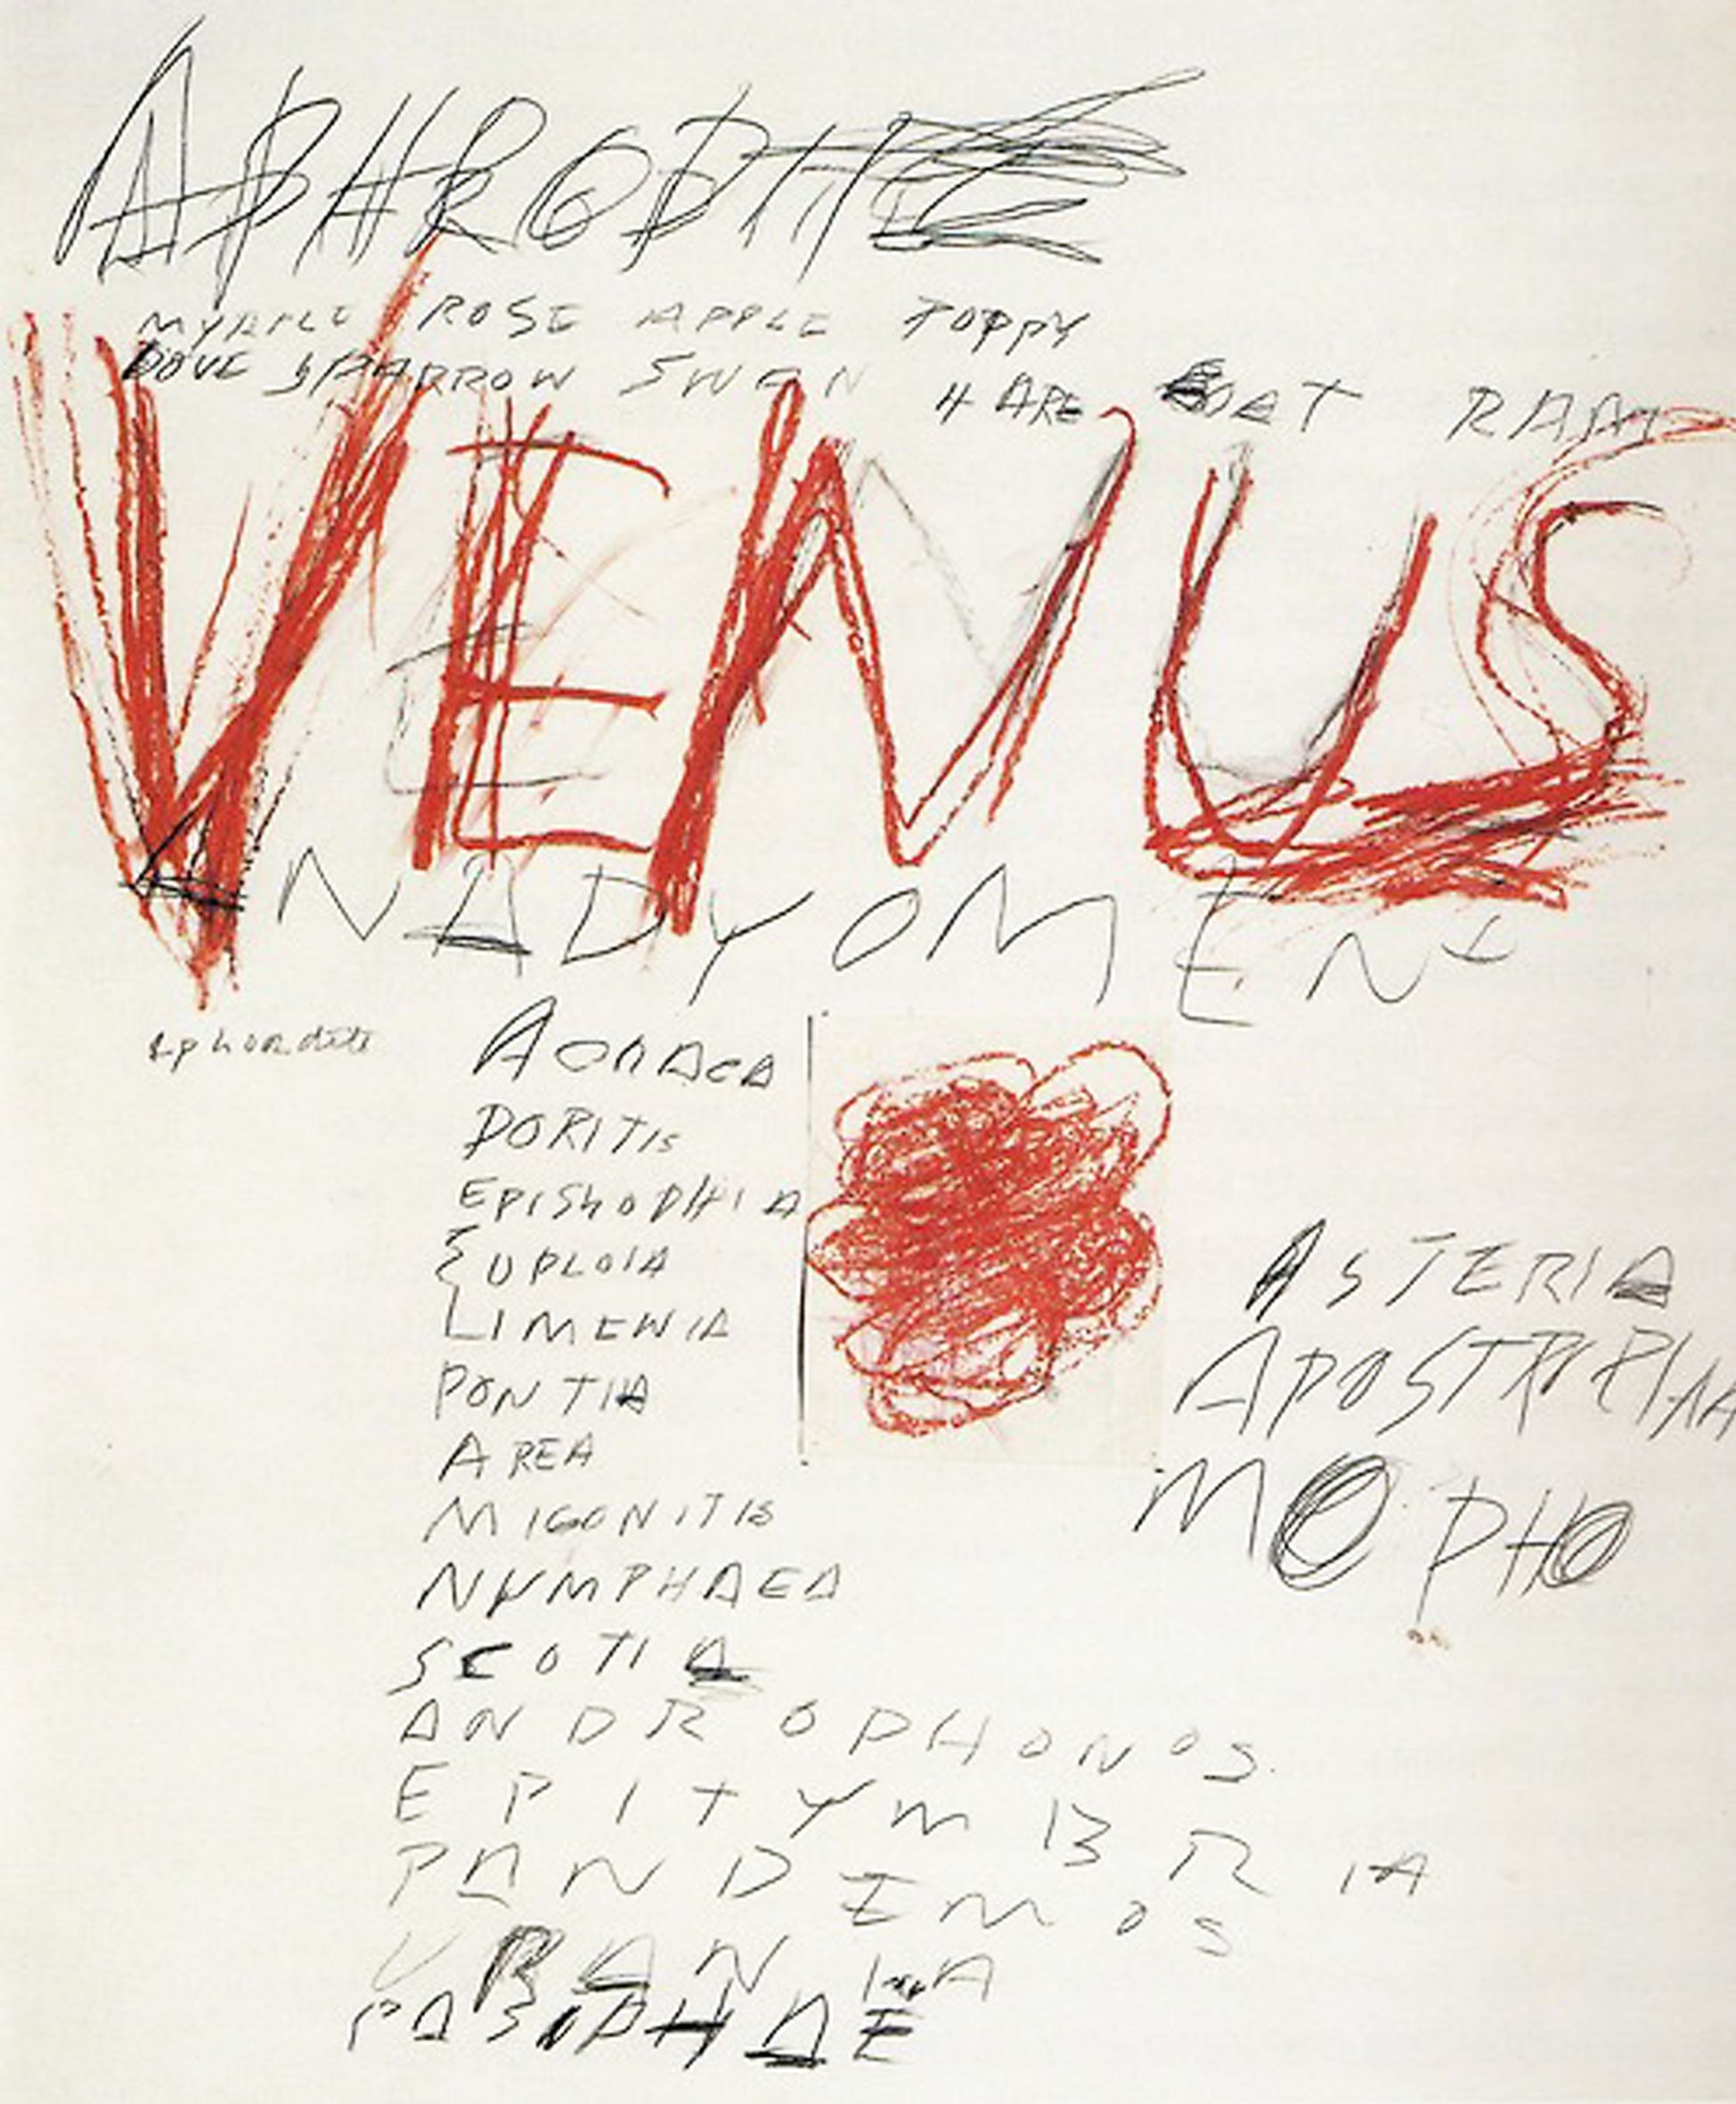 APHRODITE
MYRTLE ROSE APPLE POPPY
DOVE SPARROW SWAN HARE GOAT RAM
VENUS
ANADYOMENE
Aphrodite
ACRAEA
DORITIS
EPISKOPHIA
EUPLOIA
LIMENIA
PONTIA
AREA
MIGONITIS
NYMPHAEA
SCOTIA
ANDROPHONOS
EPITYMBRIA
PANDEMOS
URANIA
PASIPHAE
ASTERIA
APOSTROPHIA
MOPHO